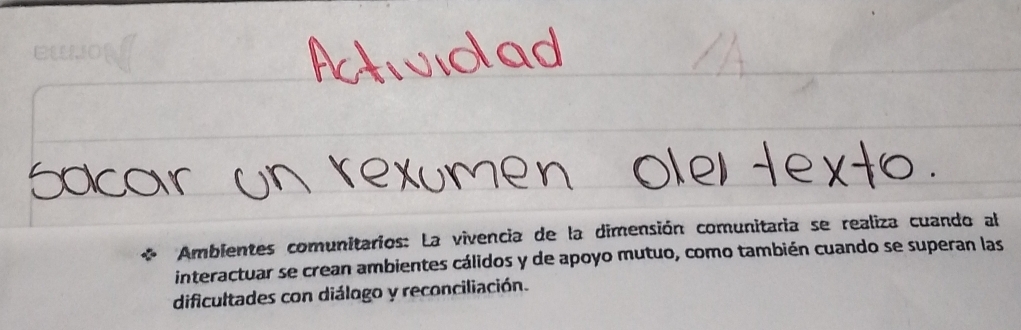 Norma
Actividad
sacar un rexumen del texto.
❖ Ambientes comunitarios: La vivencia de la dimensión comunitaria se realiza cuando al
interactuar se crean ambientes cálidos y de apoyo mutuo, como también cuando se superan las
dificultades con diálogo y reconciliación.